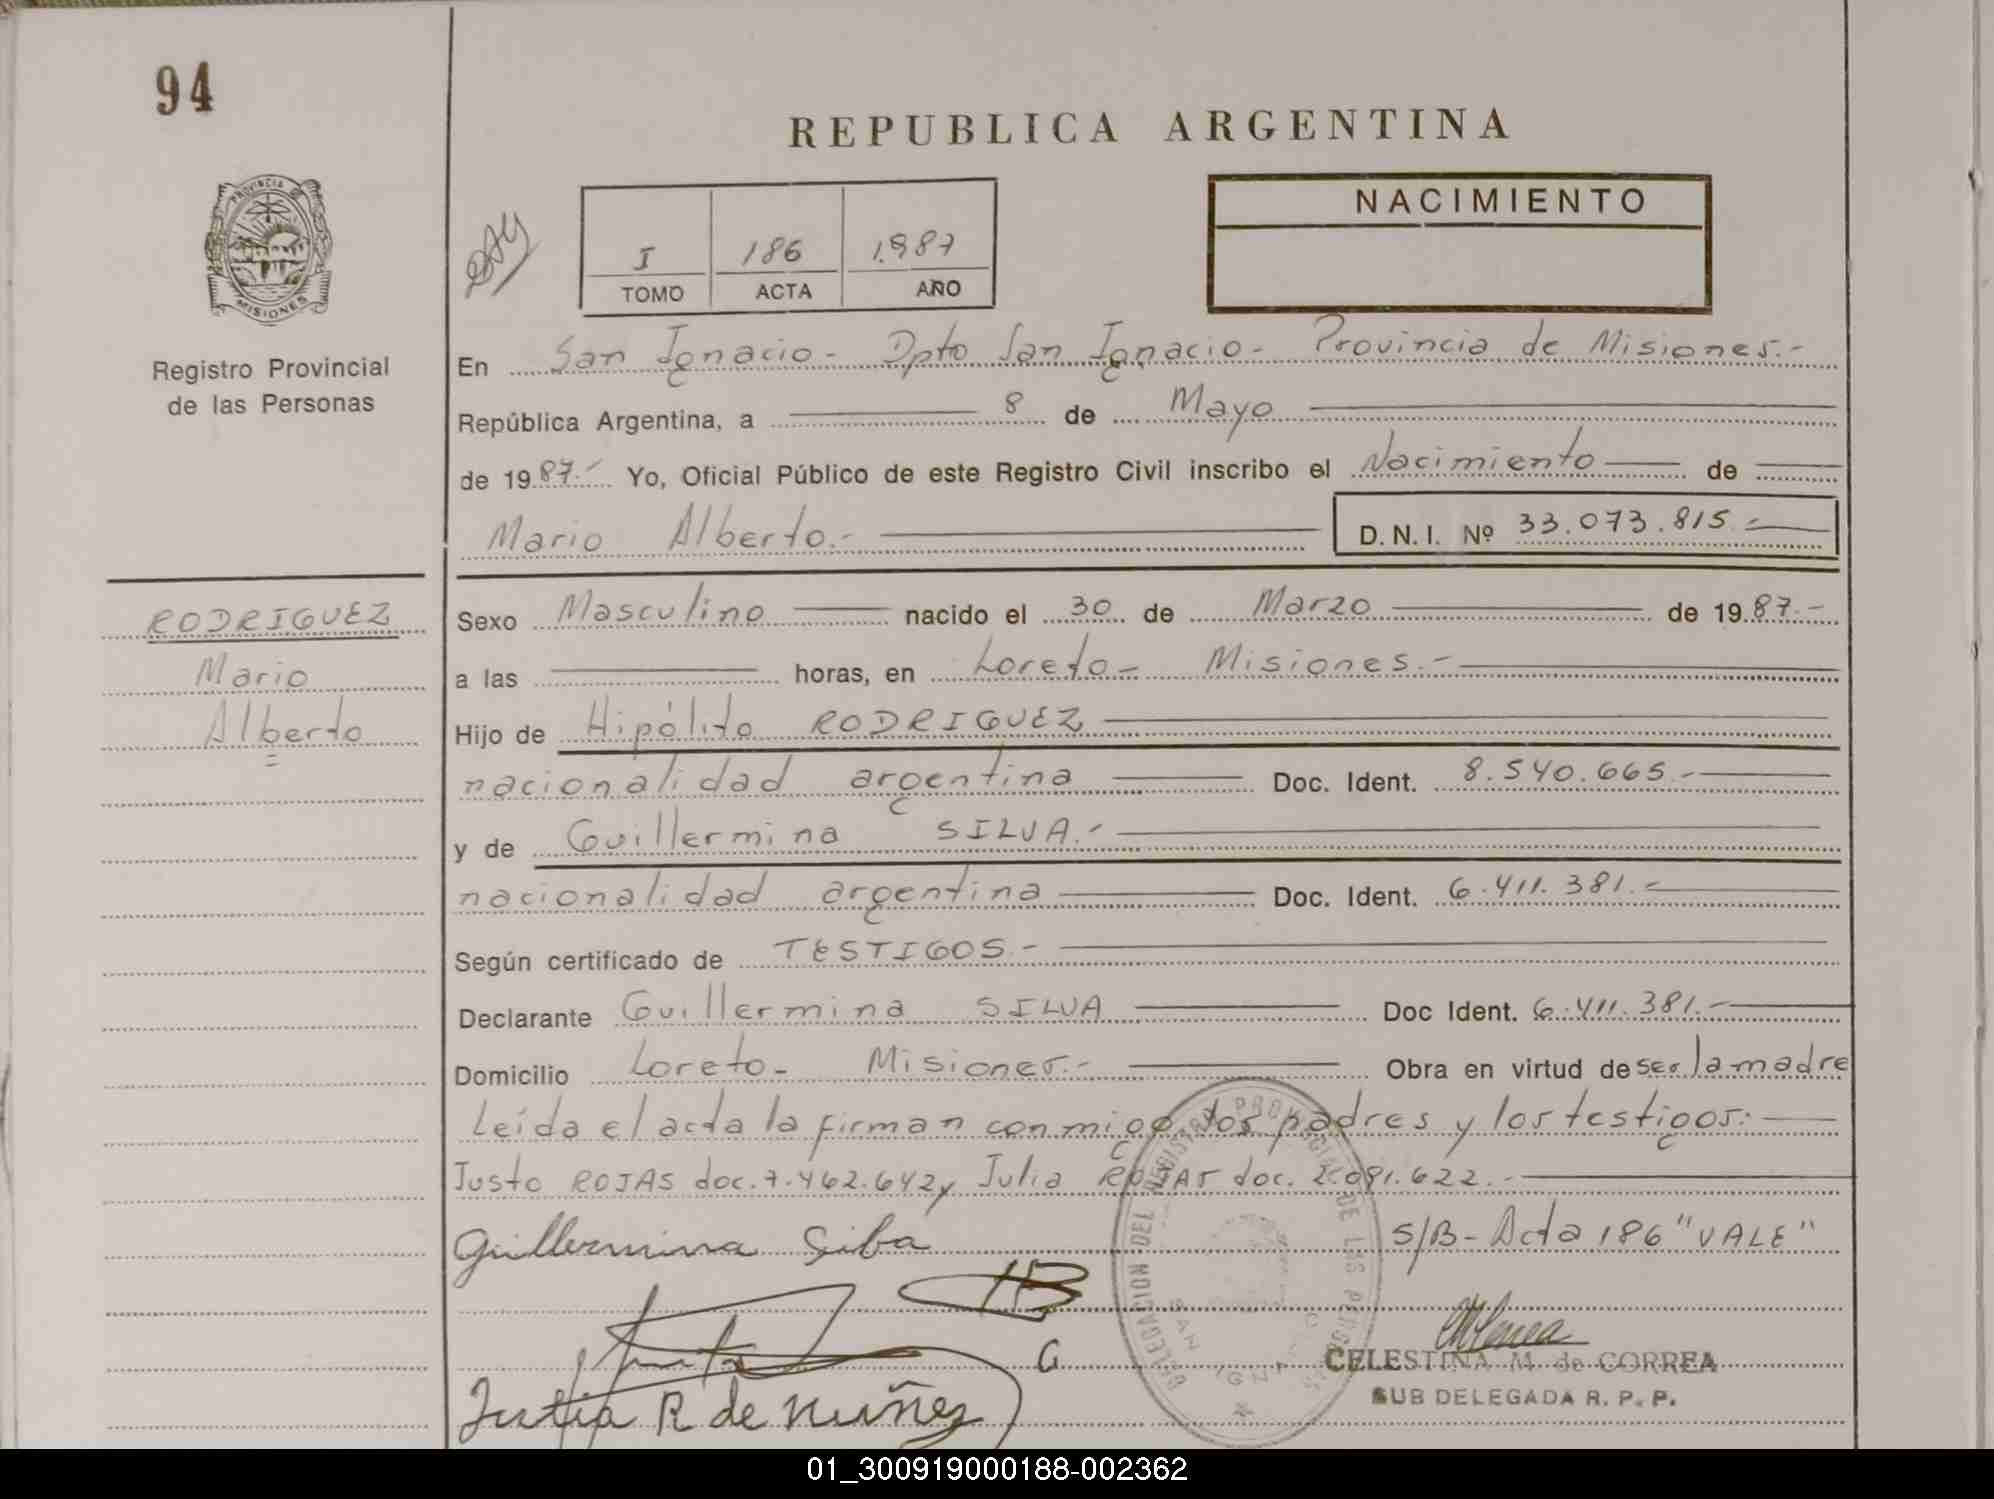 94
REPUBLICA ARGENTINA
PROVINCIA DE
MISIONES
Registro Provincial
de las Personas
I 186 1.987
TOMO ACTA AÑO
NACIMIENTO
En San Ignacio - Dpto San Ignacio - Provincia de Misiones.-
República Argentina, a 8 de Mayo
de 1987.- Yo, Oficial Público de este Registro Civil inscribo el Nacimiento de
Mario Alberto.- D.N.I. Nº 33.073.815.-
RODRIGUEZ
Mario
Alberto
Sexo Masculino nacido el 30 de Marzo de 1987.-
a las horas, en Loreto - Misiones.-
Hijo de Hipólito RODRIGUEZ
nacionalidad argentina Doc. Ident. 8.540.665.-
y de Guillermina SILVA.-
nacionalidad argentina Doc. Ident. 6.411.381.-
Según certificado de TESTIGOS.-
Declarante Guillermina SILVA Doc Ident. 6.411.381.-
Domicilio Loreto - Misiones.- Obra en virtud de ser la madre
Leída el acta la firman conmigo los padres y los testigos:
Justo ROJAS doc. 7.462.642 y Julia ROJAS doc. 2.091.622.-
Guillermina Silba S/B - Acta 186 "VALE"
DELEGACION DEL REGISTRO PROVINCIAL DE LAS PERSONAS
SAN IGNACIO
CELESTINA M. de CORREA
SUB DELEGADA R. P. P.
R de Nuñez
01_300919000188-002362